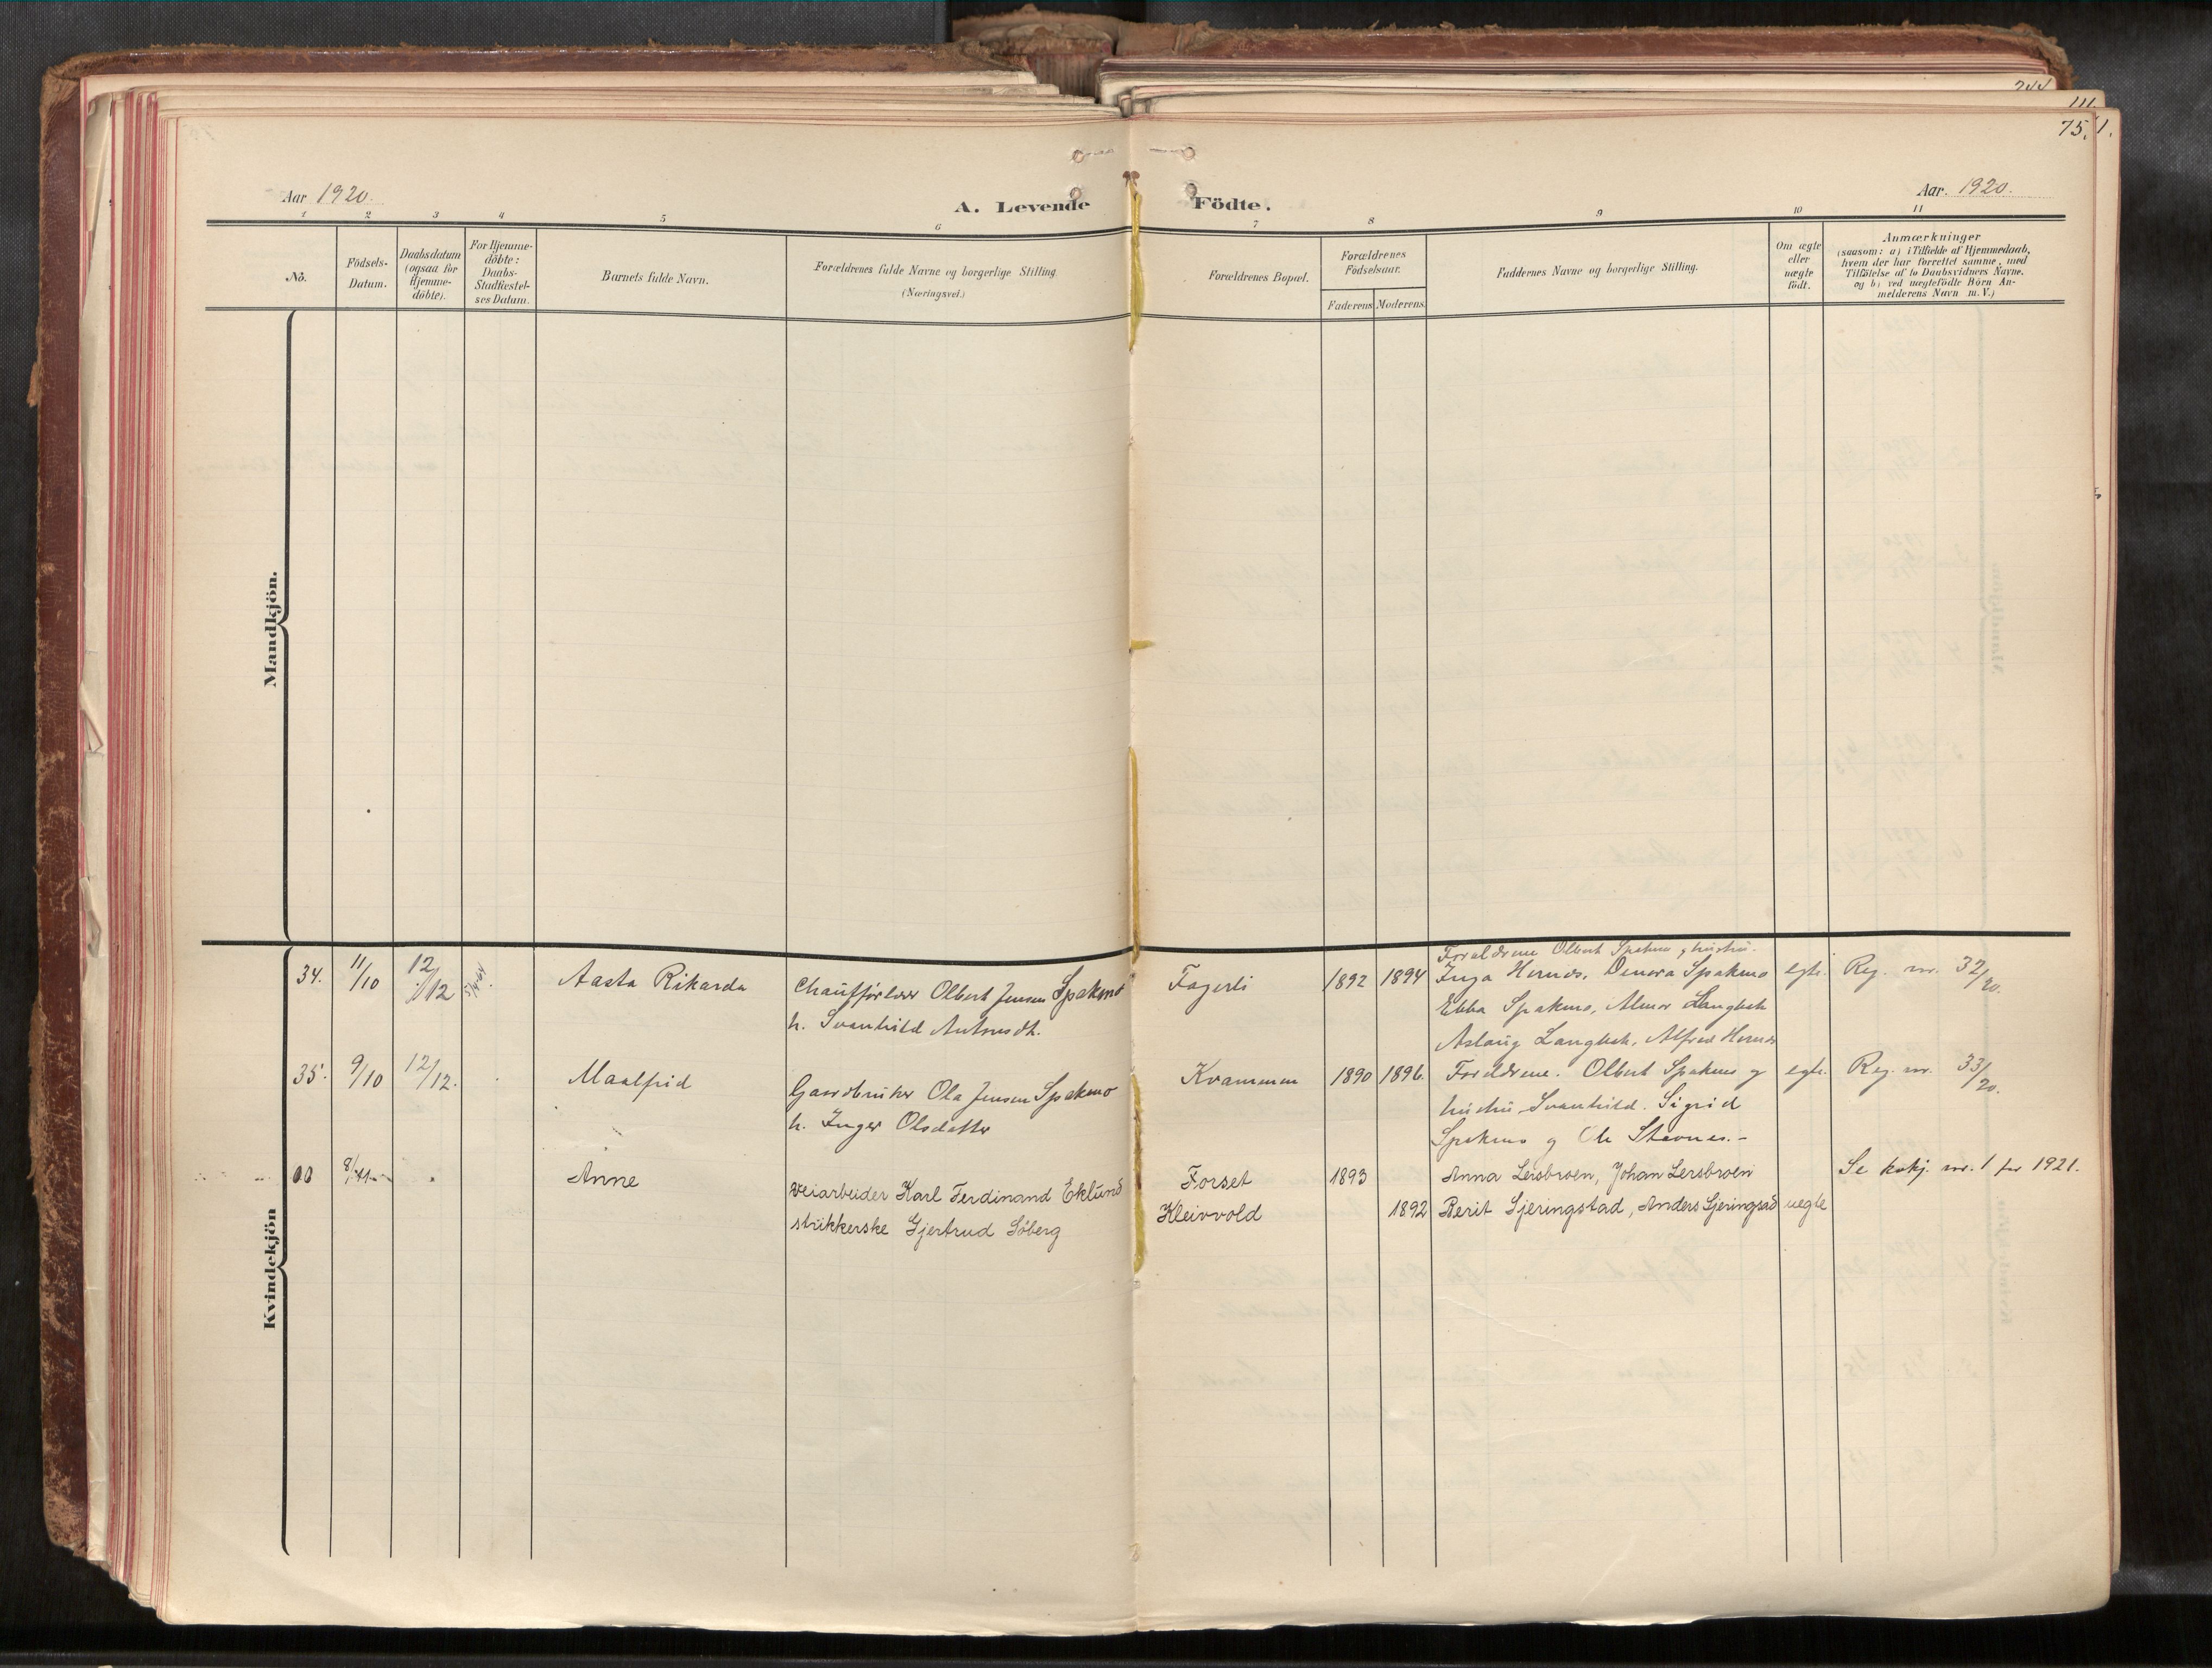 244
111.
75. 1.
Aar 1920.
A. Levende Födte.
Aar. 1920.
1 2 3 4 5 6 7 8 9 10 11
No.
Födsels-
Datum.
Daabsdatum
(ogsaa for
Hjemme-
döbte).
For Hjemme-
döbte:
Daabs-
Stadfæstel-
ses Datum.
Barnets fulde Navn.
Forældrenes fulde Navne og borgerlige Stilling.
(Næringsvei.)
Forældrenes Bopæl.
Forældrenes
Födselsaar.
Faderens Moderens
Faddernes Navne og borgerlige Stilling.
Om ægte
eller
uægte
födt.
Anmærkninger
(saasom: a) i Tilfælde af Hjemmedaab,
hvem der har forrettet samme, med
Tilföielse af to Daabsvidners Navne.
og b) ved uægtefödte Börn An-
melderens Navn m.V.)
Mandkjön.
Kvindekjön
34. 11/10 12/12 Aasta Rikarda
Chauffører Olbert Jensen Spakmo
h. Svanhild
Fagerli 1892 1894
Foreldrene Olbert Spakmo og hustru.
Inga Hernes, Spakmo
Ebba Spakmo, Langbek
Aslaug Langbek, Alfred Hernes
egte. Reg. nr. 32/20.
35. 9/10 12/12. Maalfrid
Gaardbruker Ola Jensen Spakmo
h. Inger Olsdatter
Kvammen 1890 1896.
Foreldrene. Olbert Spakmo og
hustru Svanhild. Sigrid
Spakmo og Ole Stavnes.-
egte. Reg. nr. 33/20.
00 Anne
veiarbeider Karl Ferdinand Eklund
strikkerske Gjertrud Söberg
Forset 1893
Kleivvold 1892
Anna Leisbroen, Johan Leisbroen
Berit Gjeringstad, Anders Gjeringsad uegte
Se kokj. nr. 1 for 1921.